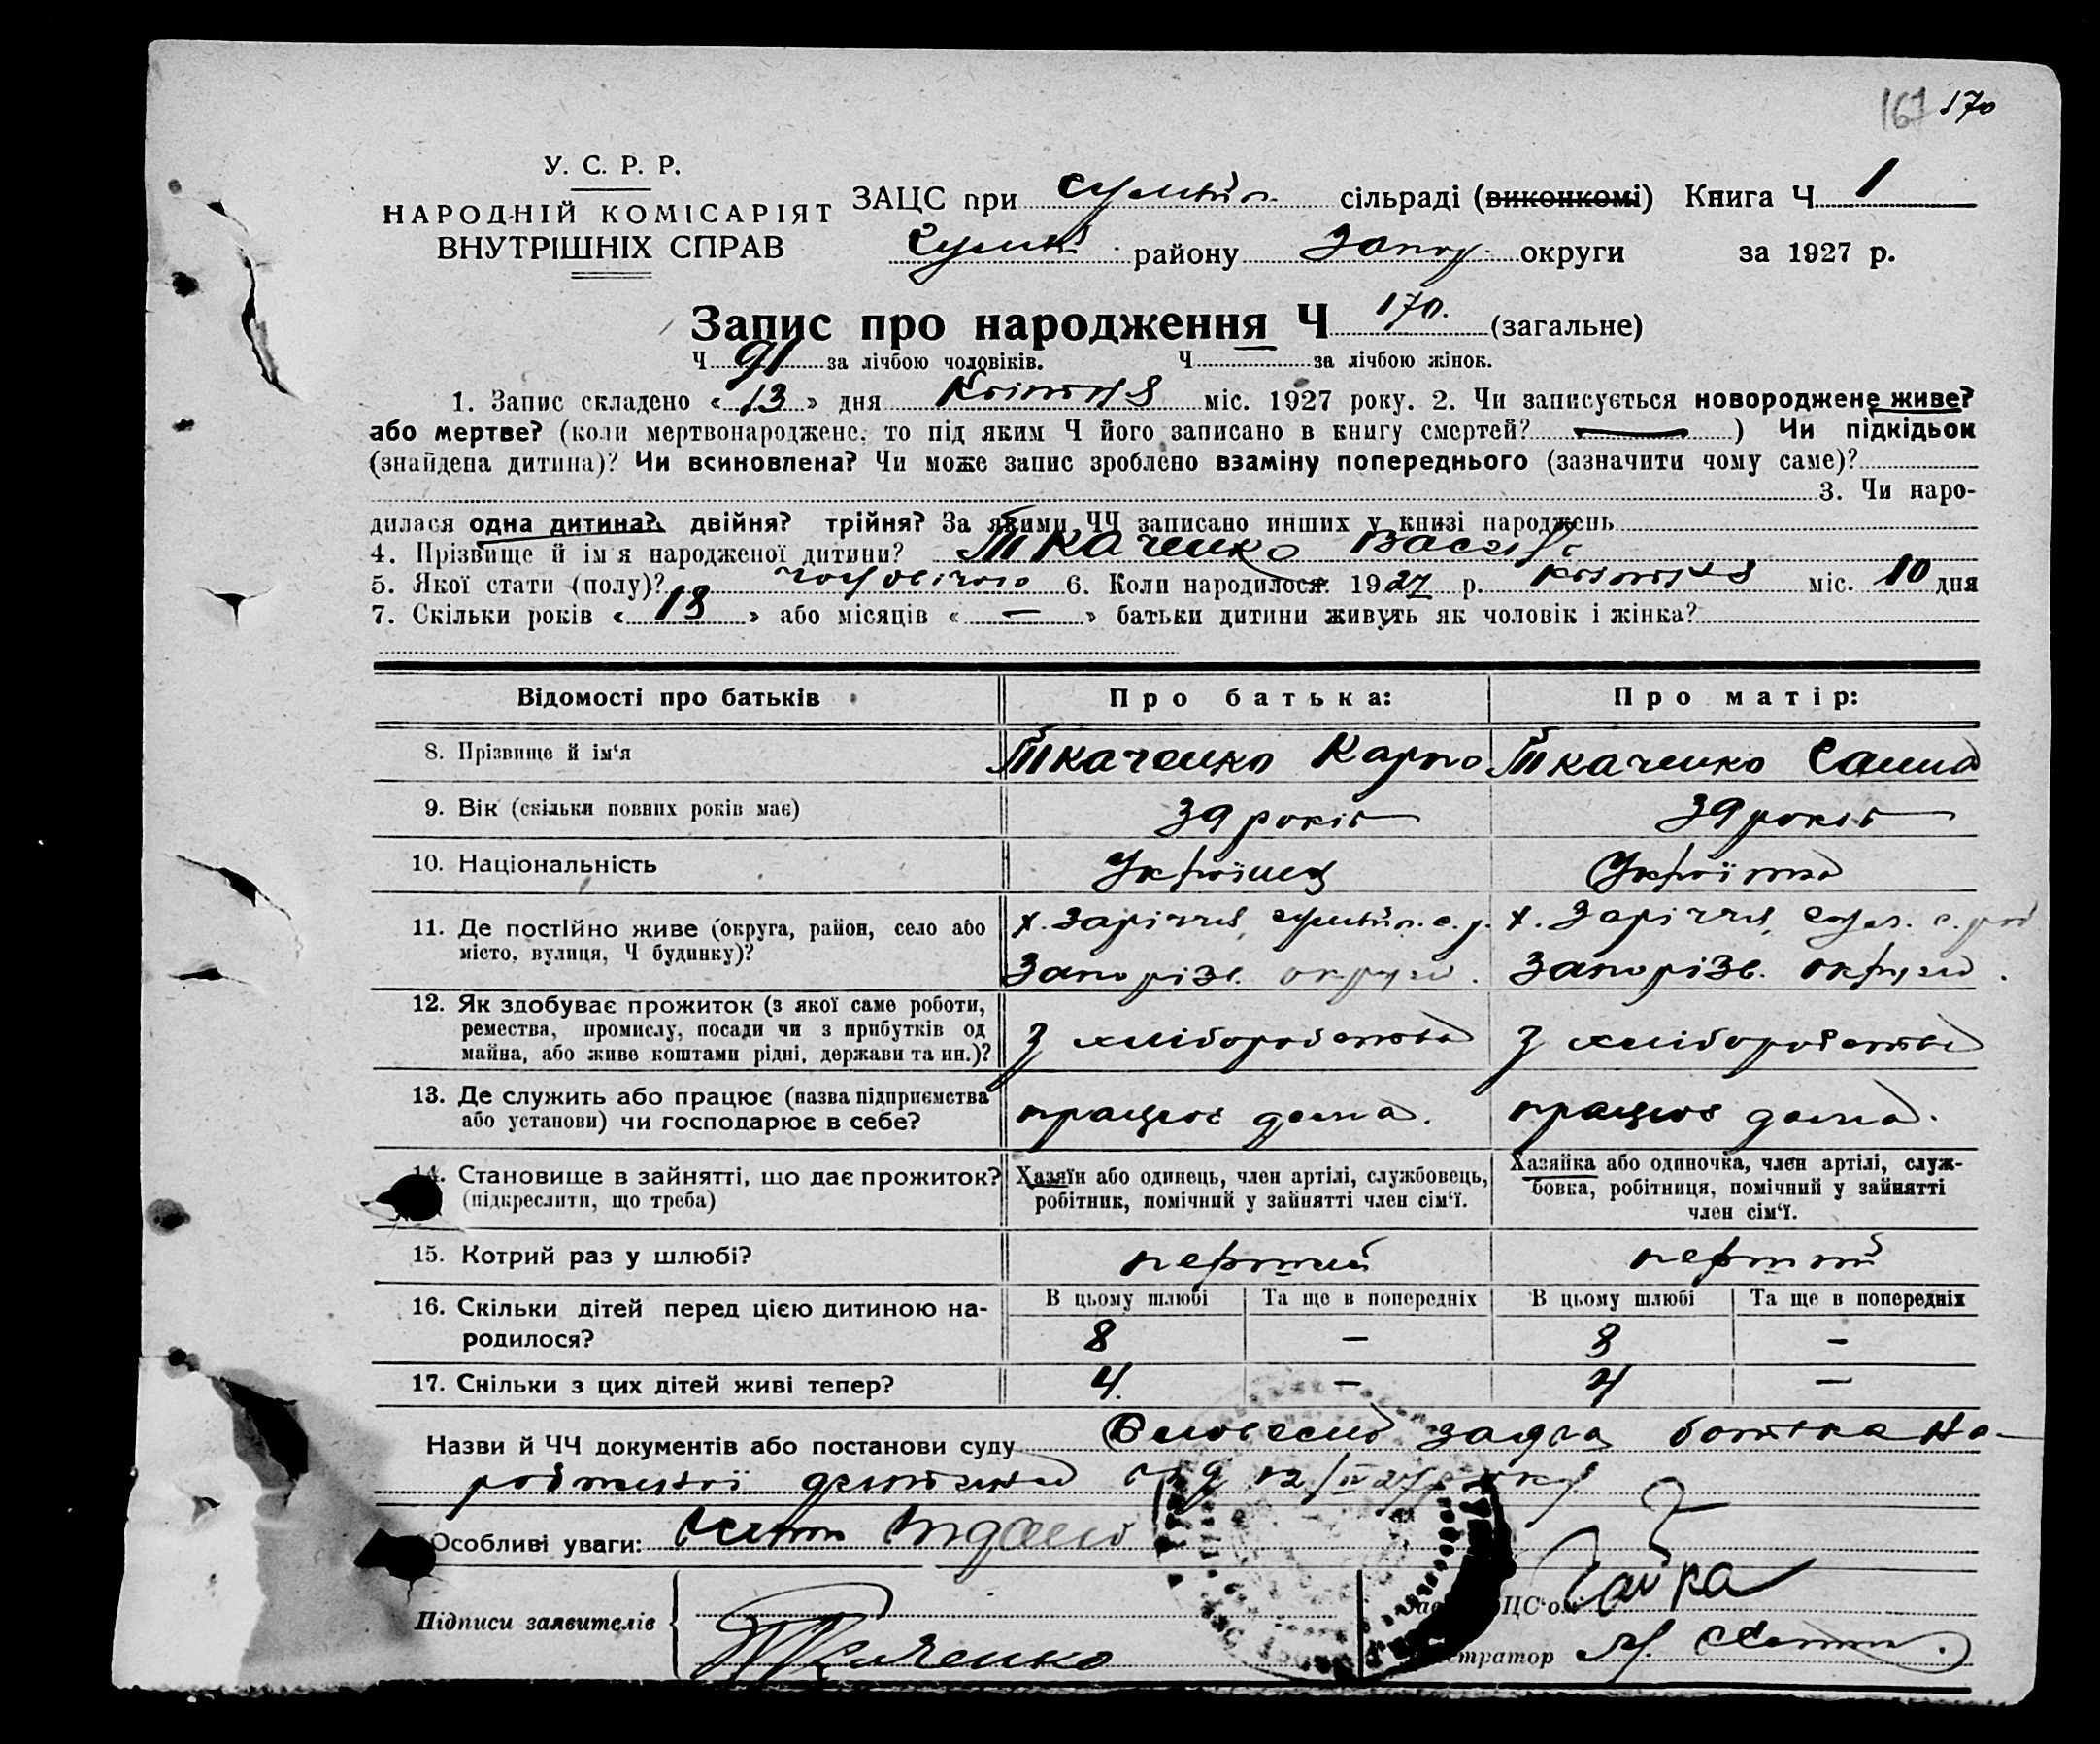 167 170
У. С. Р. Р.
НАРОДНІЙ КОМІСАРІЯТ
ВНУТРІШНІХ СПРАВ
ЗАЦС при сільраді (виконкомі) Книга Ч 1
району Запор. округи за 1927 р.
Запис про народження Ч 170. (загальне)
Ч 91 за лічбою чоловіків. Ч за лічбою жінок.
1. Запис складено « 13 » дня Квітня міс. 1927 року. 2. Чи записується новороджене живе?
або мертве? (коли мертвонароджене, то під яким Ч його записано в книгу смертей? —) Чи підкідьок
(знайдена дитина)? Чи всиновлена? Чи може запис зроблено взаміну попереднього (зазначити чому саме)?
3. Чи наро-
дилася одна дитина? двійня? трійня? За якими ЧЧ записано инших у книзі народжень
4. Прізвище й ім'я народженої дитини? Ткаченко Василь
5. Якої стати (полу)? чоловічого 6. Коли народилося: 1927 р. квітня міс. 10 дня
7. Скільки років « 18 » або місяців « — » батьки дитини живуть як чоловік і жінка?
Відомості про батьків Про батька: Про матір:
8. Прізвище й ім'я Ткаченко Карпо Ткаченко
9. Вік (скільки повних років має) 39 років 39 років
10. Національність Українец Українка
11. Де постійно живе (округа, район, село або
місто, вулиця, Ч будинку)?
х. Зарічча, с. р. х. Зарічча,
Запорізь. округи. Запорізь. округи.
12. Як здобуває прожиток (з якої саме роботи,
ремества, промислу, посади чи з прибутків од
майна, або живе коштами рідні, держави та ин.)?
З хліборобства З хліборобства
13. Де служить або працює (назва підприємства
або установи) чи господарює в себе?
працює дома. працює дома.
14. Становище в зайнятті, що дає прожиток?
(підкреслити, що треба)
Хазяїн або одинець, член артілі, службовець,
робітник, помічний у зайнятті член сім'ї.
Хазяйка або одиночка, член артілі, служ-
бовка, робітниця, помічний у зайнятті
член сім'ї.
15. Котрий раз у шлюбі? перший перший
16. Скільки дітей перед цією дитиною на-
родилося?
В цьому шлюбі Та ще в попередніх В цьому шлюбі Та ще в попередніх
8 — 8 —
17. Скільки з цих дітей живі тепер? 4 — 4 —
Назви й ЧЧ документів або постанови суду Словесна заява батька на-
родженої дитини од 12/IV 27 року
Особливі уваги:
Підписи заявителів Ткаченко
ЦС'ом Гайка
стратор